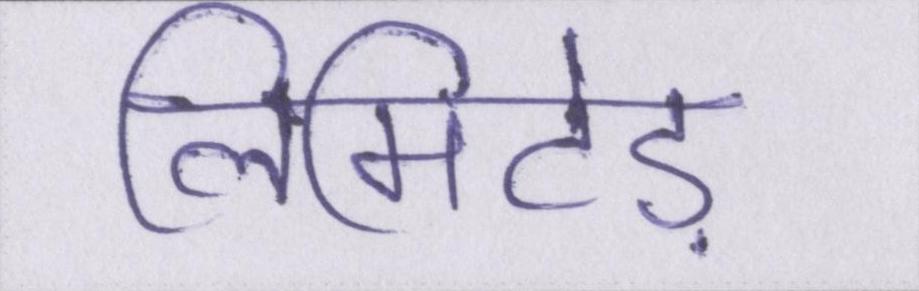 लिमिटेड़